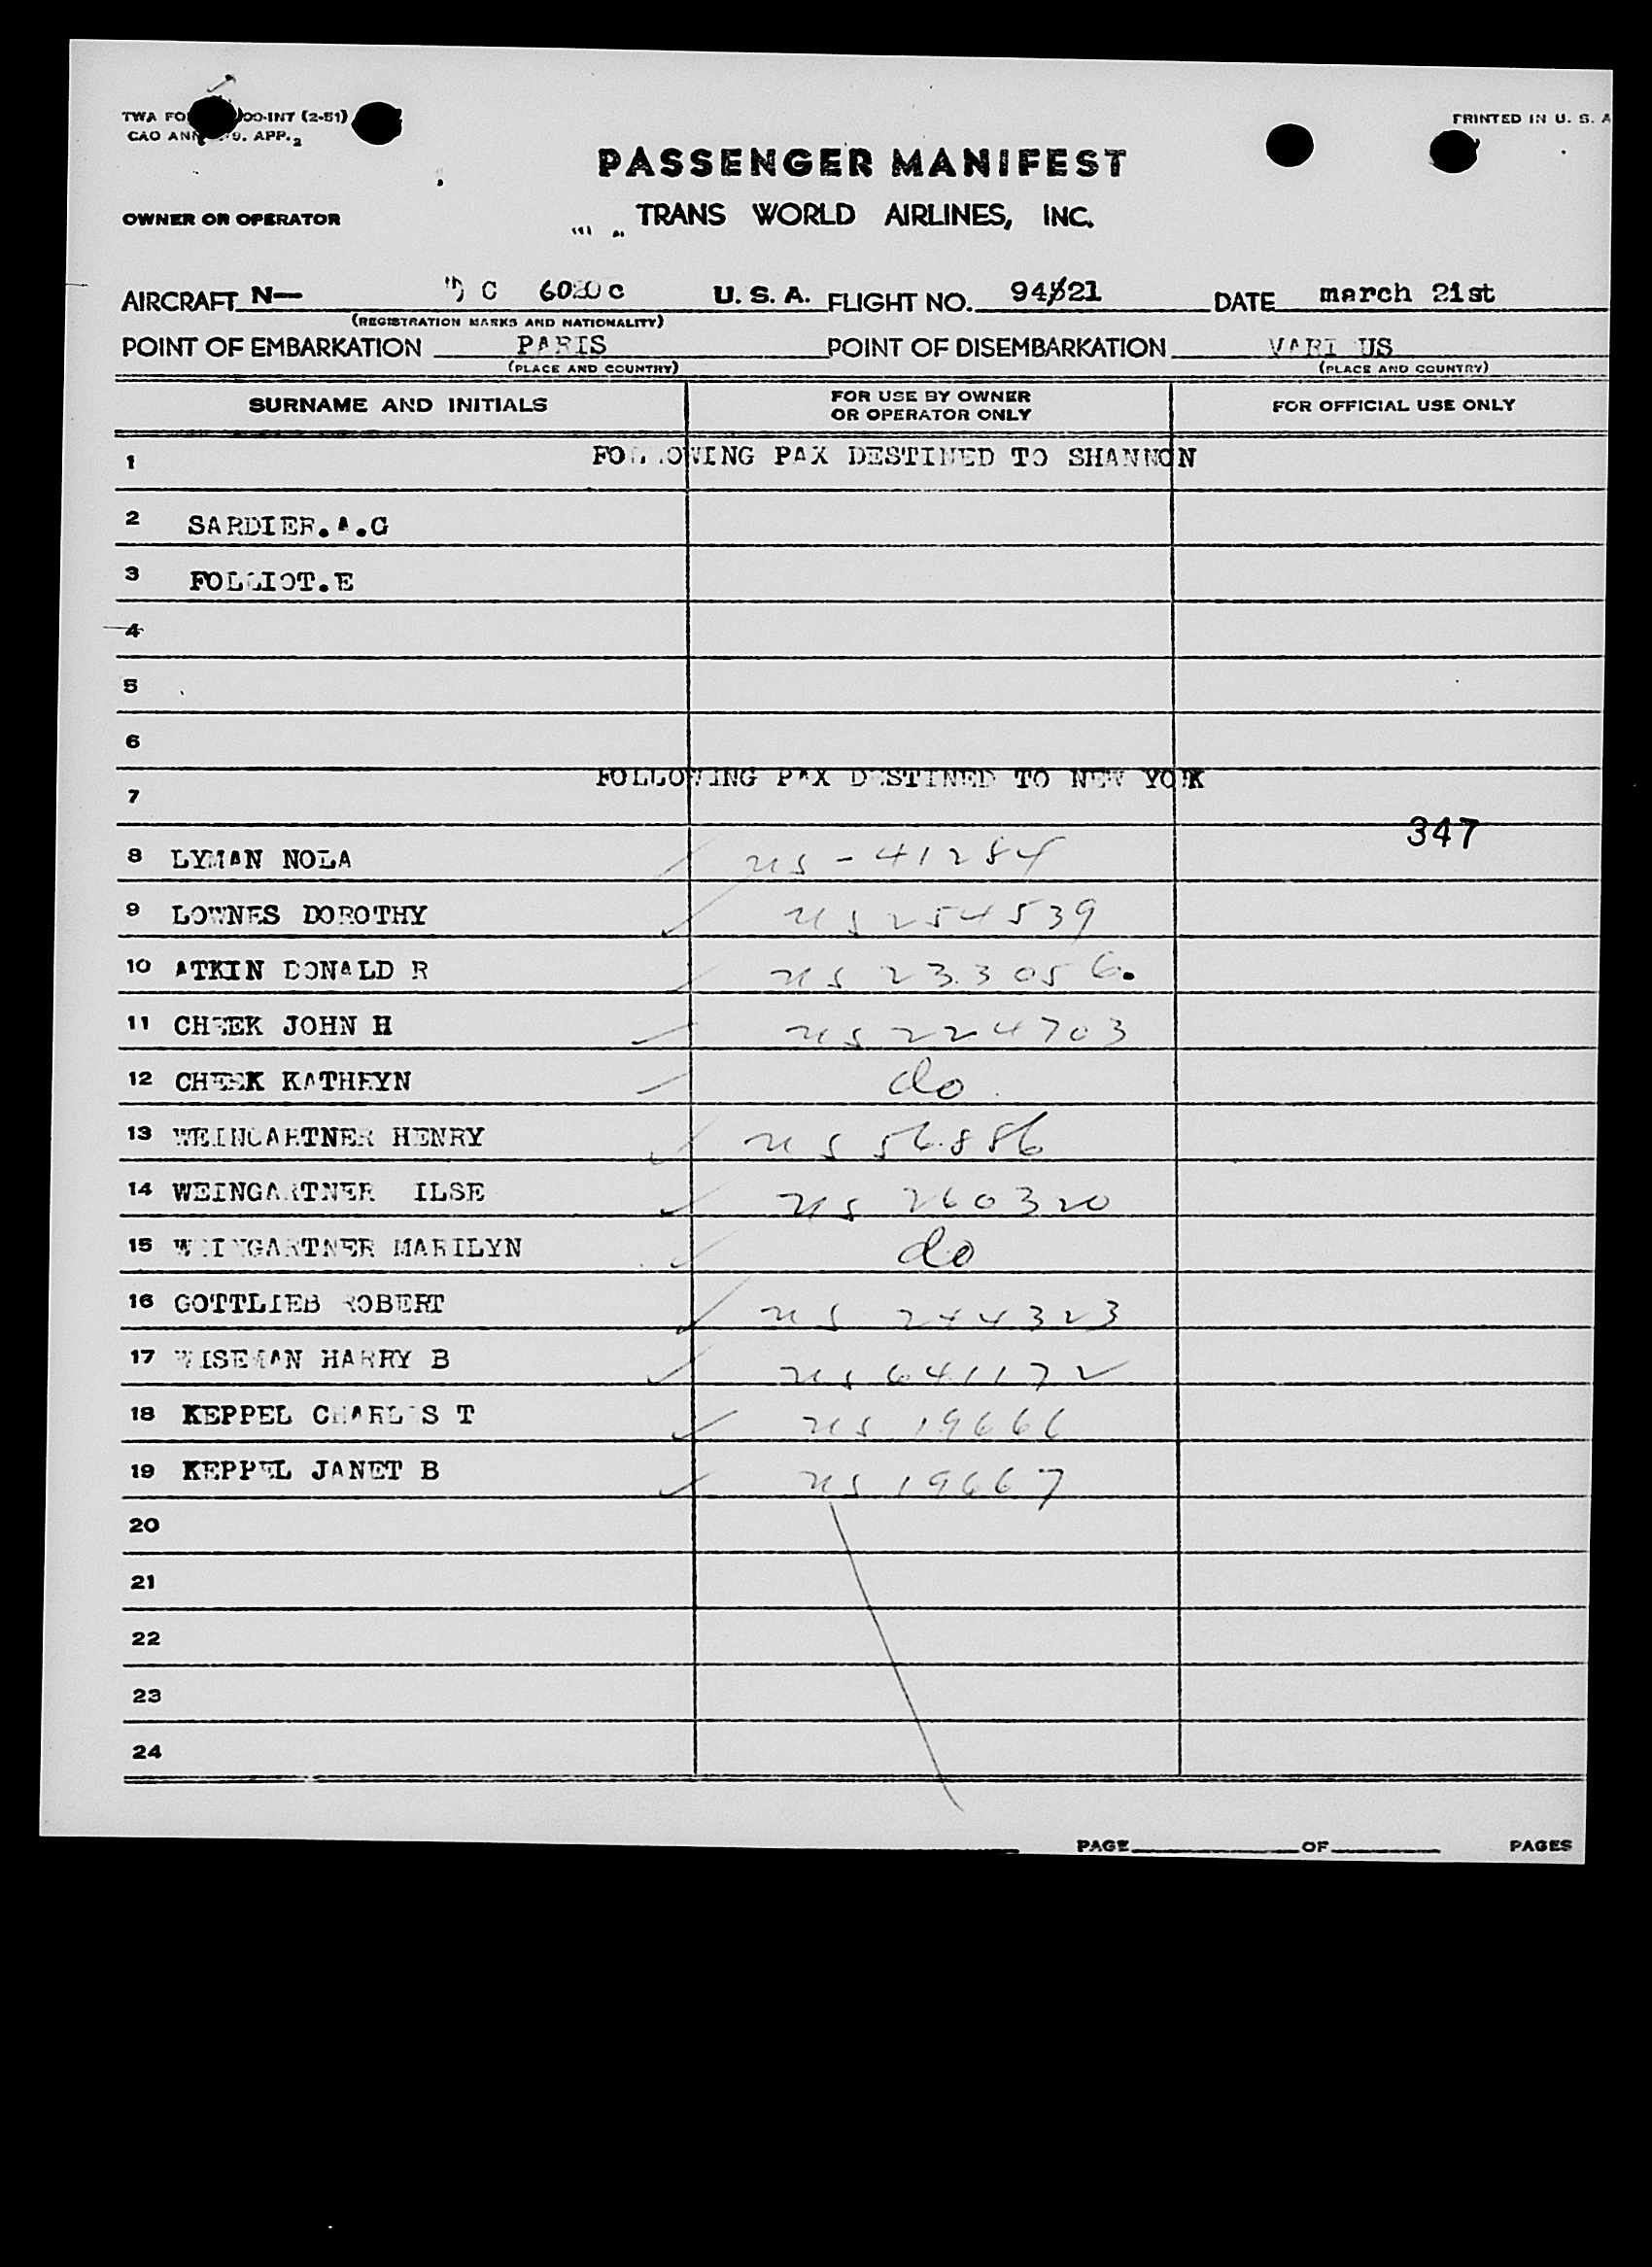 PRINTED IN U. S. A
APP. 2
PASSENGER MANIFEST
OWNER OR OPERATOR
TRANS WORLD AIRLINES, INC.
AIRCRAFT N— C U. S. A. FLIGHT NO. DATE march 21st
(REGISTRATION MARKS AND NATIONALITY)
POINT OF EMBARKATION PARIS POINT OF DISEMBARKATION VARI US
(PLACE AND COUNTRY) (PLACE AND COUNTRY)
SURNAME AND INITIALS FOR USE BY OWNER OR OPERATOR ONLY FOR OFFICIAL USE ONLY
1 FOLLOWING PAX DESTINED TO SHANNON
2 SARDIER.A.G
3 FOLLIOT.E
4
5
6
7 FOLLOWING PAX DESTINED TO NEW YORK
347
8 LYMAN NOLA us - 41284
9 LOWNES DOROTHY us 254539
10 ATKIN DONALD R us 233056.
11 CHEEK JOHN H us 224703
12 CHEEK KATHRYN do
13 WEINGARTNER HENRY us 56886
14 WEINGARTNER ILSE us 260320
15 WEINGARTNER MARILYN do
16 GOTTLIEB ROBERT us 244323
17 WISEMAN HARRY B us 641172
18 KEPPEL CHARLES T us 19666
19 KEPPEL JANET B us 19667
20
21
22
23
24
PAGE OF PAGES